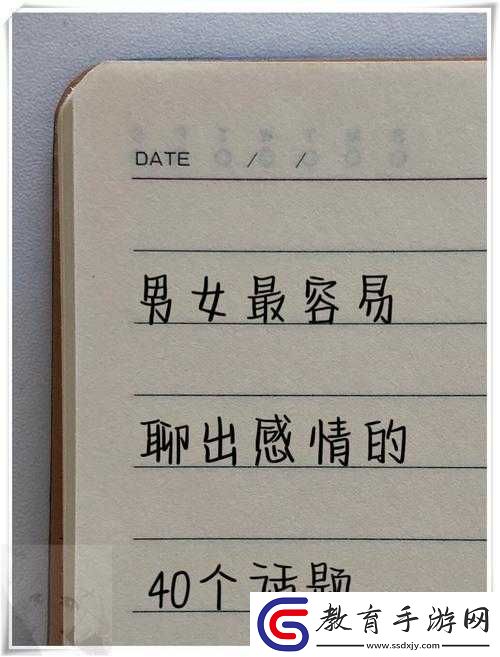 DATE / /
男女最容易
聊出感情的
40个话题
教育手游网
www.ssdxjy.com